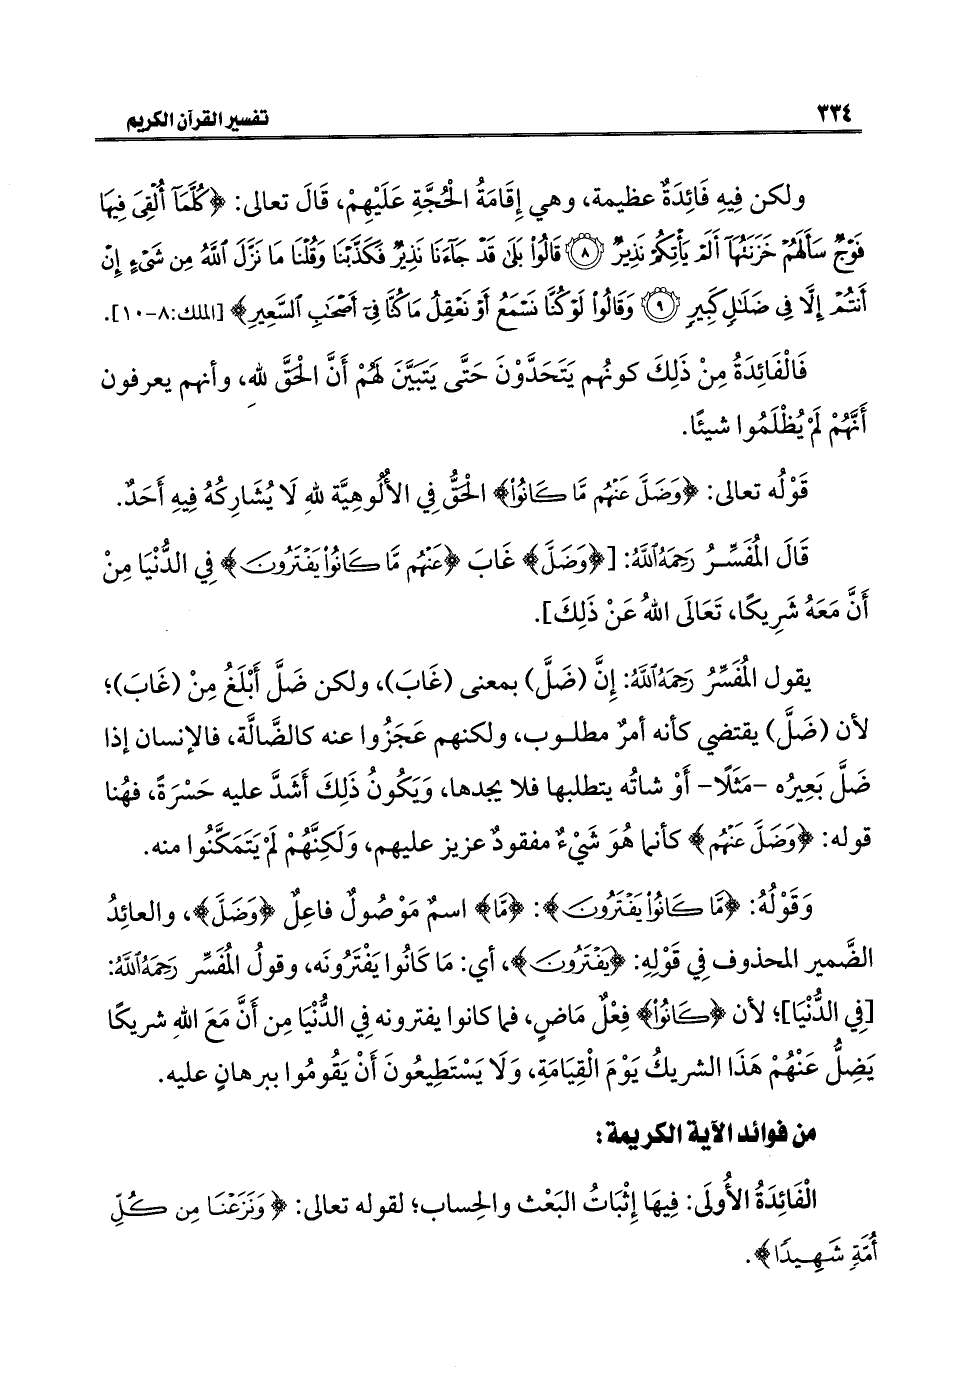 ٣٣٤ تفسير القرآن الكريم
ولكن فِيهِ فَائِدَةٌ عظيمة، وهي إِقَامَةُ الْحُجَّةِ عَلَيْهِمْ، قَالَ تعالى: ﴿كُلَّمَآ أُلْقِىَ فِيهَا
فَوْجٌ سَأَلَهُمْ خَزَنَتُهَآ أَلَمْ يَأْتِكُمْ نَذِيرٌ ﴿٨﴾ قَالُوا۟ بَلَىٰ قَدْ جَآءَنَا نَذِيرٌ فَكَذَّبْنَا وَقُلْنَا مَا نَزَّلَ ٱللَّهُ مِن شَىْءٍ إِنْ
أَنتُمْ إِلَّا فِى ضَلَـٰلٍ كَبِيرٍ ﴿٩﴾ وَقَالُوا۟ لَوْ كُنَّا نَسْمَعُ أَوْ نَعْقِلُ مَا كُنَّا فِىٓ أَصْحَـٰبِ ٱلسَّعِيرِ﴾ [الملك:٨-١٠].
فَالْفَائِدَةُ مِنْ ذَلِكَ كونُهم يَتَحَدَّوْنَ حَتَّى يَتَبَيَّنَ لَهُمْ أَنَّ الْحَقَّ للهِ، وأنهم يعرفون
أَنَّهُمْ لَمْ يُظْلَمُوا شيئًا.
قَوْلُه تعالى: ﴿وَضَلَّ عَنْهُم مَّا كَانُوا۟﴾ الْحَقُّ فِي الأُلُوهِيَّة للهِ لَا يُشَارِكُهُ فِيهِ أَحَدٌ.
قَالَ المُفَسِّرُ رَحِمَهُ ٱللَّهُ: [﴿وَضَلَّ﴾ غَابَ ﴿عَنْهُم مَّا كَانُوا۟ يَفْتَرُونَ﴾ فِي الدُّنْيَا مِنْ
أَنَّ مَعَهُ شَرِيكًا، تَعَالَى اللهُ عَنْ ذَلِكَ].
يقول المُفَسِّرُ رَحِمَهُ ٱللَّهُ: إِنَّ (ضَلَّ) بمعنى (غَابَ)، ولكن ضَلَّ أَبْلَغُ مِنْ (غَابَ)؛
لأن (ضَلَّ) يقتضي كأنه أمرٌ مطلوب، ولكنهم عَجَزُوا عنه كالضَّالَّة، فالإنسان إذا
ضَلَّ بَعِيرُه -مَثَلًا- أَوْ شاتُه يتطلبها فلا يجدها، وَيَكُونُ ذَلِكَ أَشَدَّ عليه حَسْرَةً، فهُنا
قوله: ﴿وَضَلَّ عَنْهُم﴾ كأنما هُوَ شَيْءٌ مفقودٌ عزيز عليهم، وَلَكِنَّهُمْ لَمْ يَتَمَكَّنُوا منه.
وَقَوْلُهُ: ﴿مَّا كَانُوا۟ يَفْتَرُونَ﴾: ﴿مَّا﴾ اسمٌ مَوْصُولٌ فاعِلٌ ﴿وَضَلَّ﴾، والعائِدُ
الضَّمير المحذوف فِي قَوْلِهِ: ﴿يَفْتَرُونَ﴾، أي: مَا كَانُوا يَفْتَرُونَه، وقولُ المُفَسِّر رَحِمَهُ ٱللَّهُ:
[فِي الدُّنْيَا]؛ لأن ﴿كَانُوا۟﴾ فِعْلٌ مَاضٍ، فما كانوا يفترونه فِي الدُّنْيَا مِن أَنَّ مَعَ اللهِ شريكًا
يَضِلُّ عَنْهُمْ هَذَا الشريكُ يَوْمَ الْقِيَامَةِ، وَلَا يَسْتَطِيعُونَ أَنْ يَقُومُوا ببرهانٍ عليه.
من فوائد الآية الكريمة:
الْفَائِدَةُ الأُولَى: فِيهَا إِثْبَاتُ البَعْث والحِساب؛ لقوله تعالى: ﴿وَنَزَعْنَا مِن كُلِّ
أُمَّةٍ شَهِيدًا﴾.